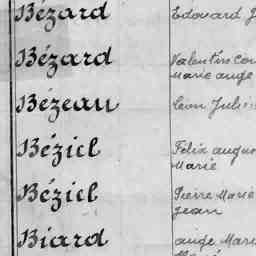 Bézard Edouard J
Bézard Valentin Cou
Marie ange
Bézeau Léon Julien
Béziel Felix augus
Marie
Béziel Pierre Marie
Jean
Biard ange Mari